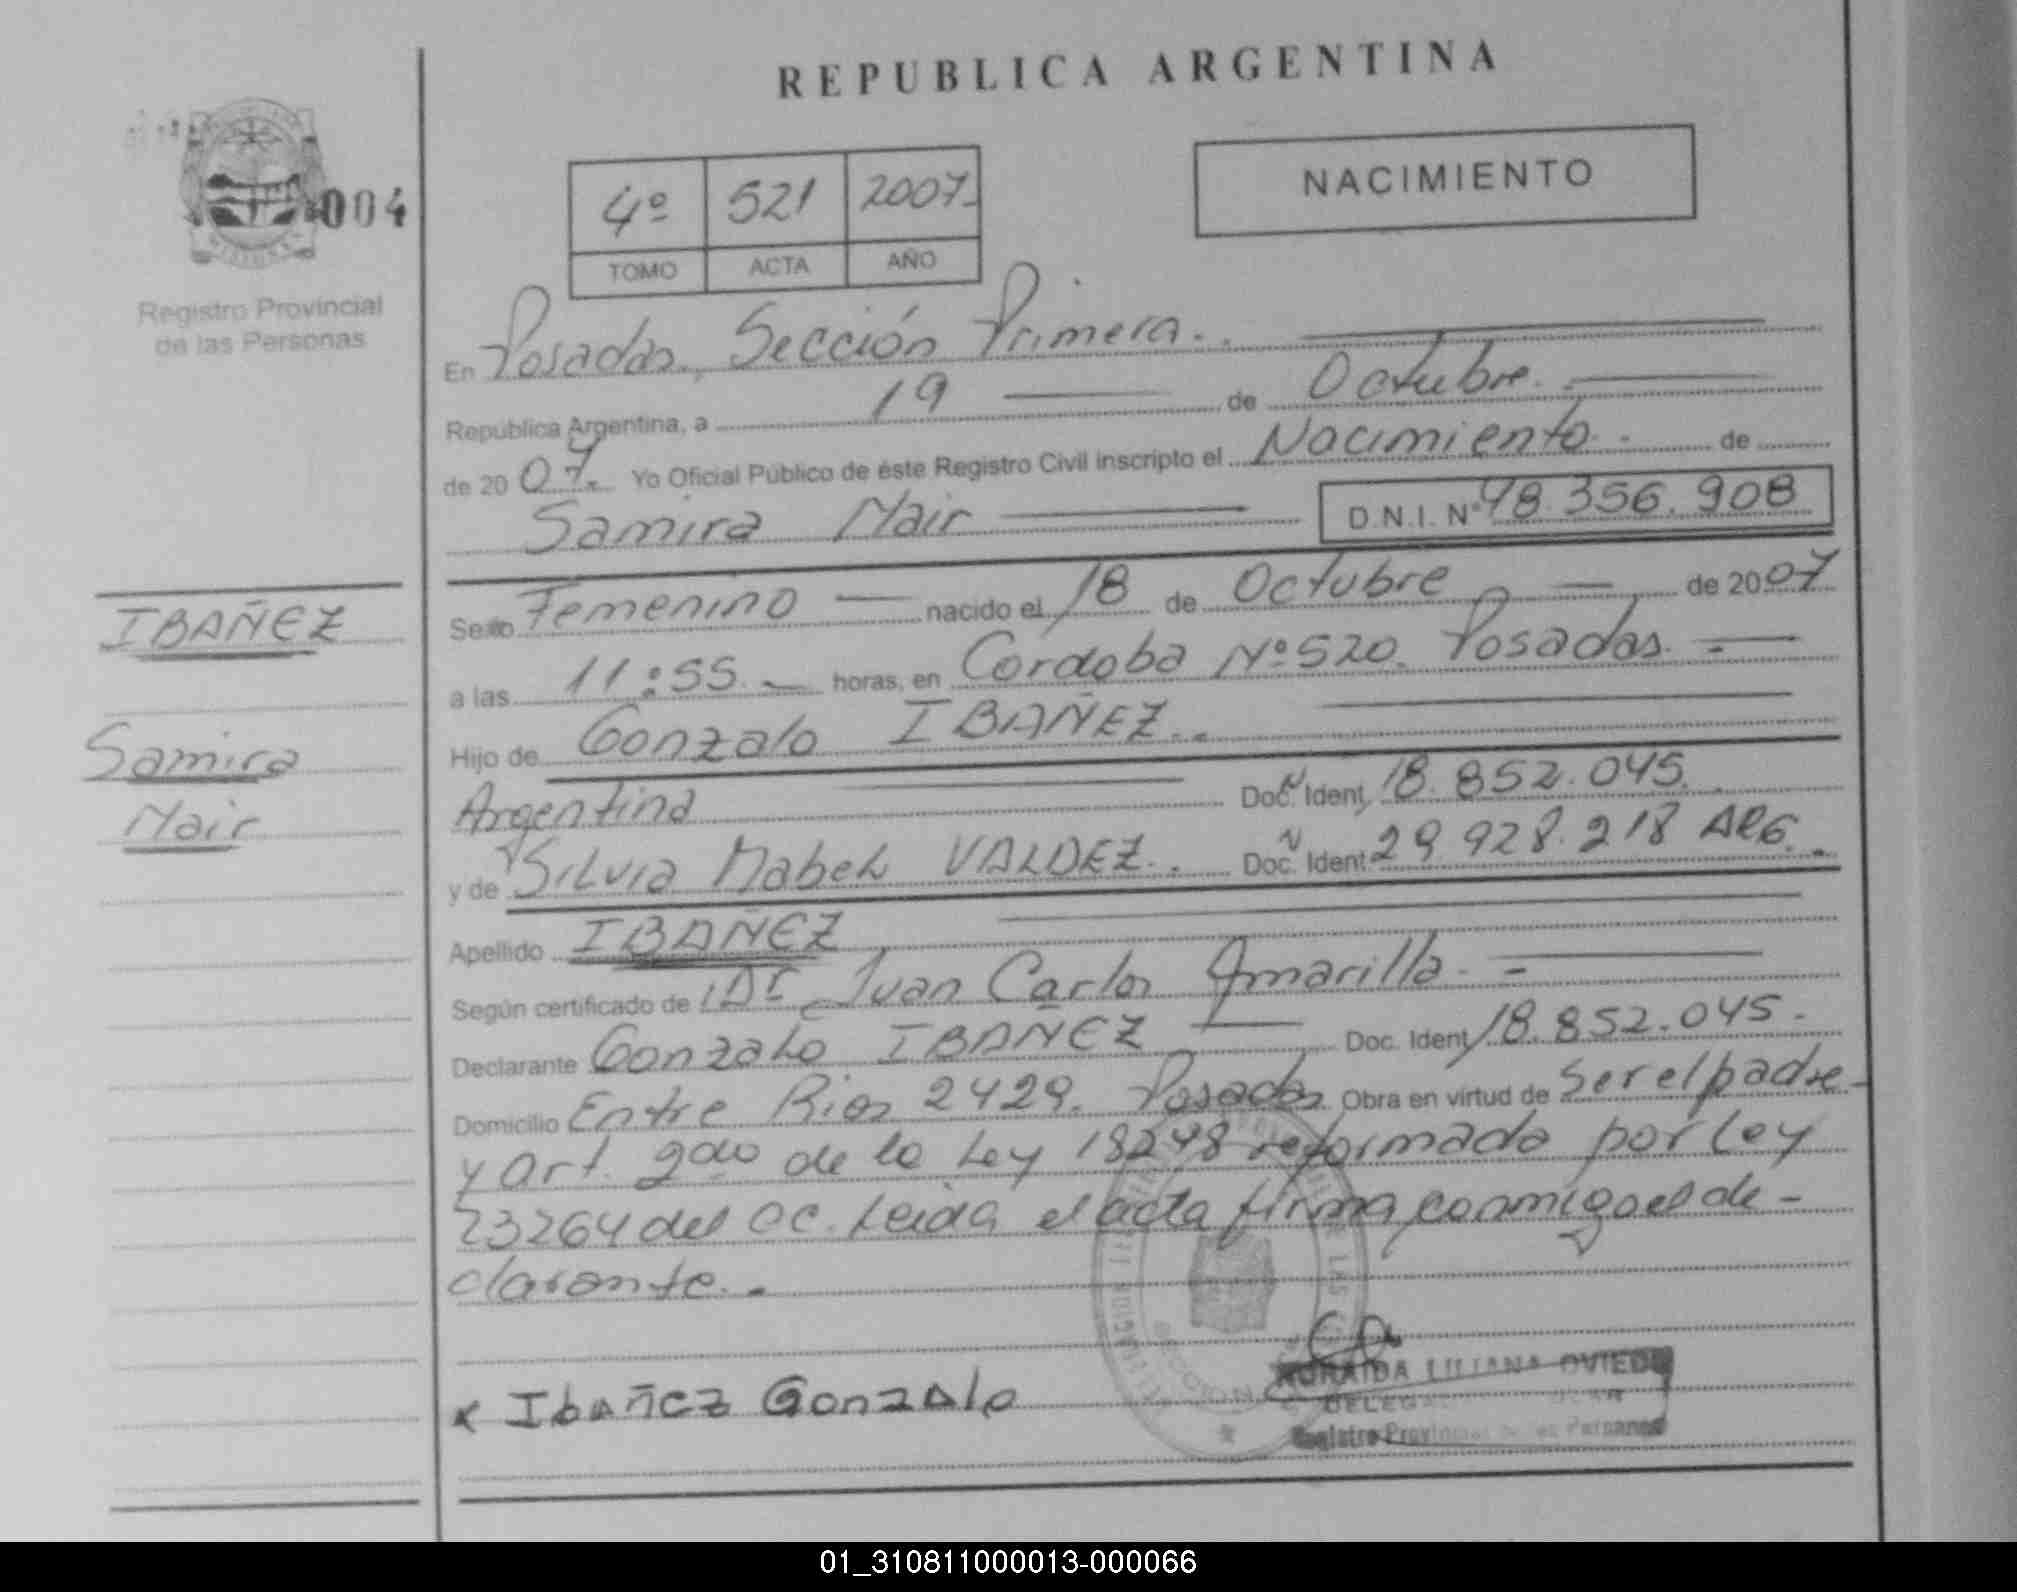 REPUBLICA ARGENTINA
004
MISIONES
Registro Provincial
de las Personas
4º 521 2007
TOMO ACTA AÑO
NACIMIENTO
En Posadas, Sección Primera.
República Argentina, a 19 de Octubre.
de 2007. Yo Oficial Público de éste Registro Civil inscripto el Nacimiento de
Samira Nair D.N.I. Nº 48.356.908
Sexo Femenino nacido el 18 de Octubre de 2007
a las 11:55. horas, en Cordoba Nº 520. Posadas.
Hijo de Gonzalo IBAÑEZ.
Argentina Doc. Ident. 18.852.045.
y de Silvia Mabel VALDEZ. Doc. Ident. 29.928.218 ARG.
Apellido IBAÑEZ
Según certificado de Dr. Juan Carlos Amarilla.
Declarante Gonzalo IBAÑEZ Doc. Ident. 18.852.045.
Domicilio Entre Rios 2429. Posadas Obra en virtud de Ser el padre
y art. 2do de la Ley 18248 reformado por Ley
23264 del CC. Leida el acta firma conmigo el de-
clarante.
x Ibañez Gonzalo
IBAÑEZ
Samira
Nair
LILIANA OVIEDO
Registro Provincial de las Personas
01_310811000013-000066